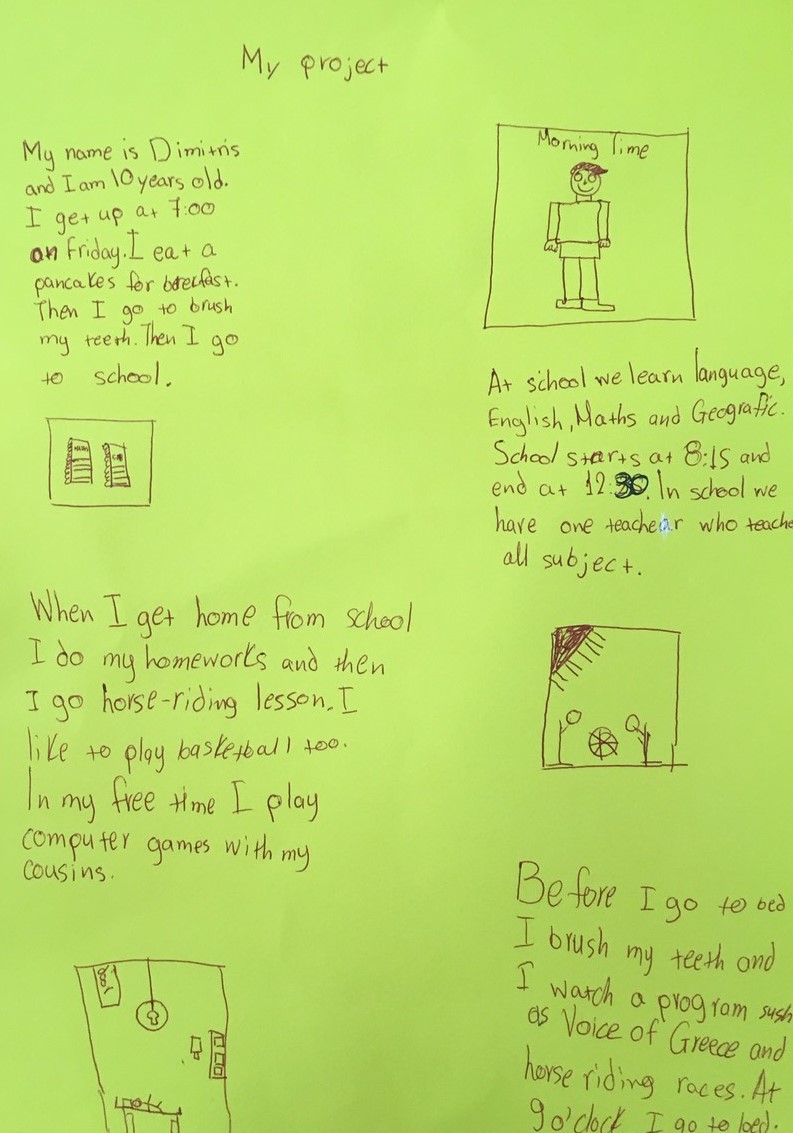 My project
My name is Dimitris
and I am 10 years old.
I get up at 7:00
on Friday. I eat a
pancakes for brecfast.
Then I go to brush
my teeth. Then I go
to school.
Morning Time
At school we learn language,
English, Maths and Geografic.
School starts at 8:15 and
end at 12:30. In school we
have one teachear who teache
all subject.
When I get home from school
I do my homeworks and then
I go horse-riding lesson. I
like to play basketball too.
In my free time I play
computer games with my
cousins.
Before I go to bed
I brush my teeth and
I watch a program sush
as Voice of Greece and
horse riding races. At
9 o'clock I go to bed.